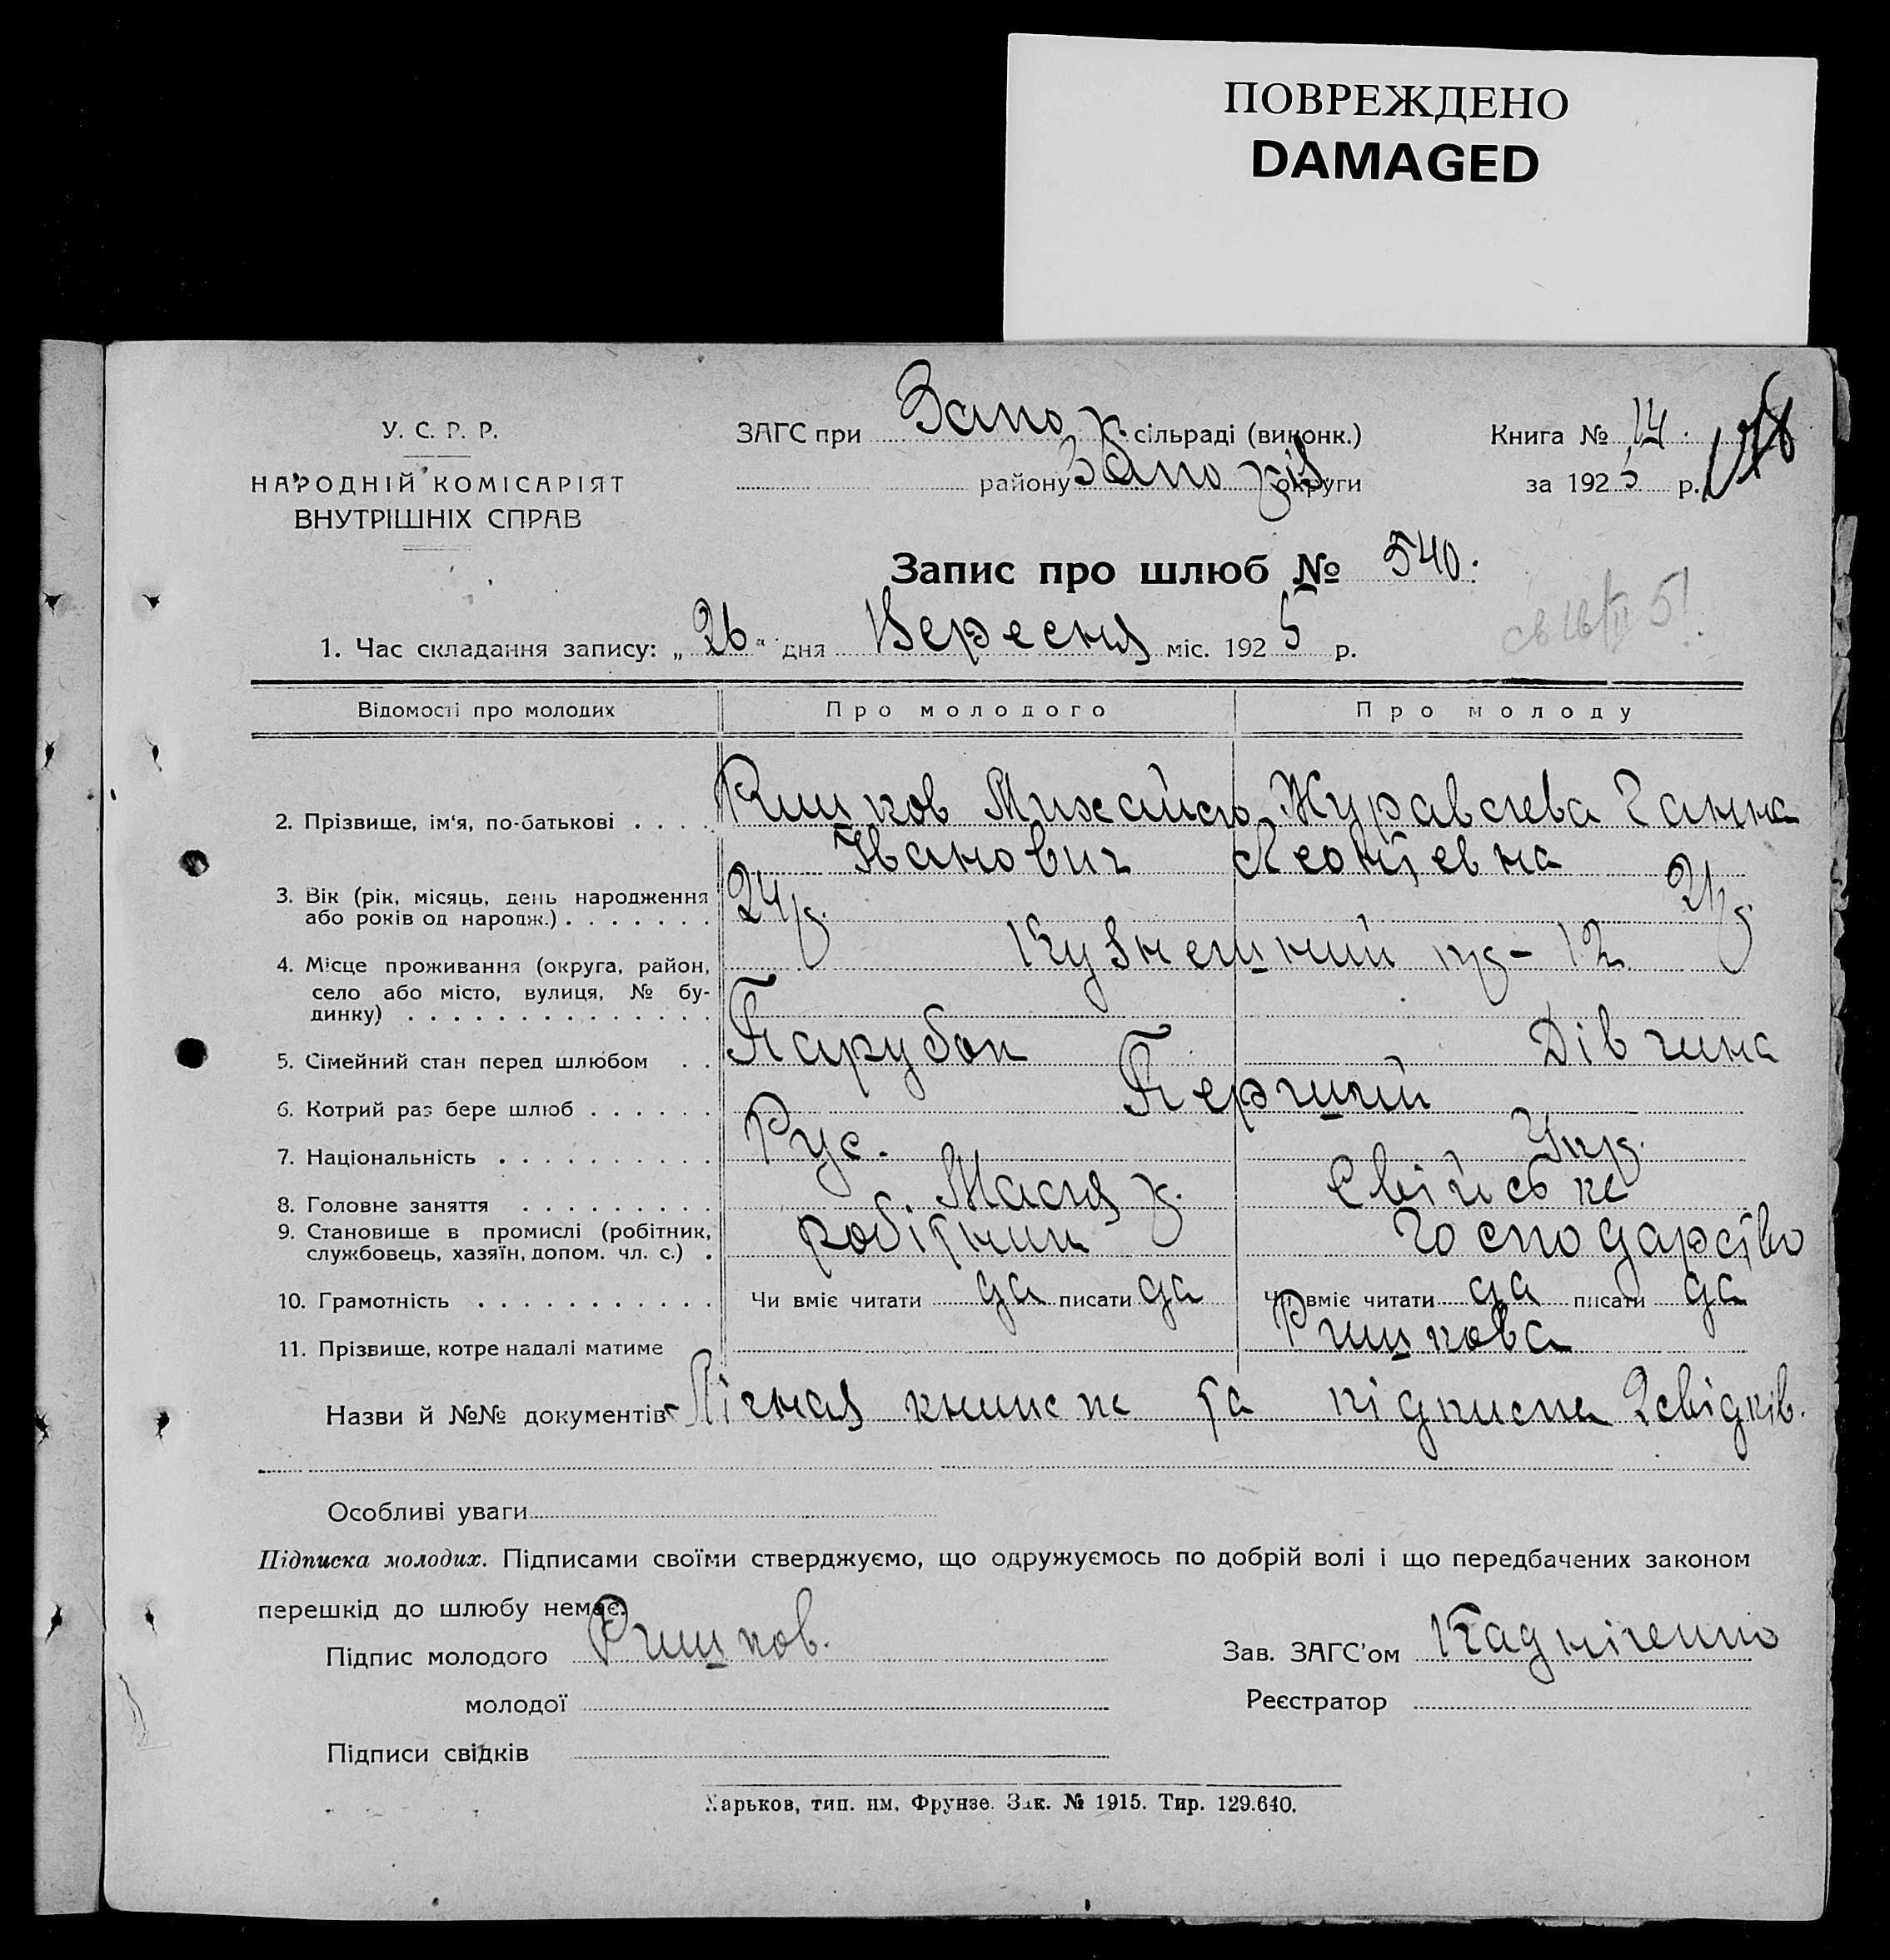 ПОВРЕЖДЕНО
DAMAGED
У. С. Р. Р.
НАРОДНІЙ КОМІСАРІЯТ
ВНУТРІШНІХ СПРАВ
ЗАГС при Запоріж. сільраді (виконк.)
району Запоріж округи
Книга № 14.
за 1925 р.
Запис про шлюб № 540.
1. Час складання запису: „26" дня Вересня міс. 1925 р.
Відомості про молодих Про молодого Про молоду
2. Прізвище, ім'я, по-батькові . . . . Ришков Михайло Журавлева Ганна
Іванович Леонтєвна
3. Вік (рік, місяць, день народження
або років од народж.) . . . . . . . 24 р. 21 р.
4. Місце проживання (округа, район,
село або місто, вулиця, № бу-
динку) . . . . . . . . . . . . . . Кузнешний пр – 12
5. Сімейний стан перед шлюбом . . Парубок Дівчина
6. Котрий раз бере шлюб . . . . . . Перший
7. Національність . . . . . . . . . . Рус. Укр.
8. Головне заняття . . . . . . . . . Свійське
9. Становище в промислі (робітник,
службовець, хазяїн, допом. чл. с.) . робітник господарство
10. Грамотність . . . . . . . . . . . Чи вміє читати да писати да Чи вміє читати да писати да
11. Прізвище, котре надалі матиме Ришкова
Назви й №№ документів - Лічная книжка та підписка 2 свідків.
Особливі уваги
Підписка молодих. Підписами своїми стверджуємо, що одружуємось по добрій волі і що передбачених законом
перешкід до шлюбу немає.
Підпис молодого Ришков. Зав. ЗАГС'ом
молодої Реєстратор
Підписи свідків
Харьков, тип. им. Фрунзе. Зак. № 1915. Тир. 129.640.